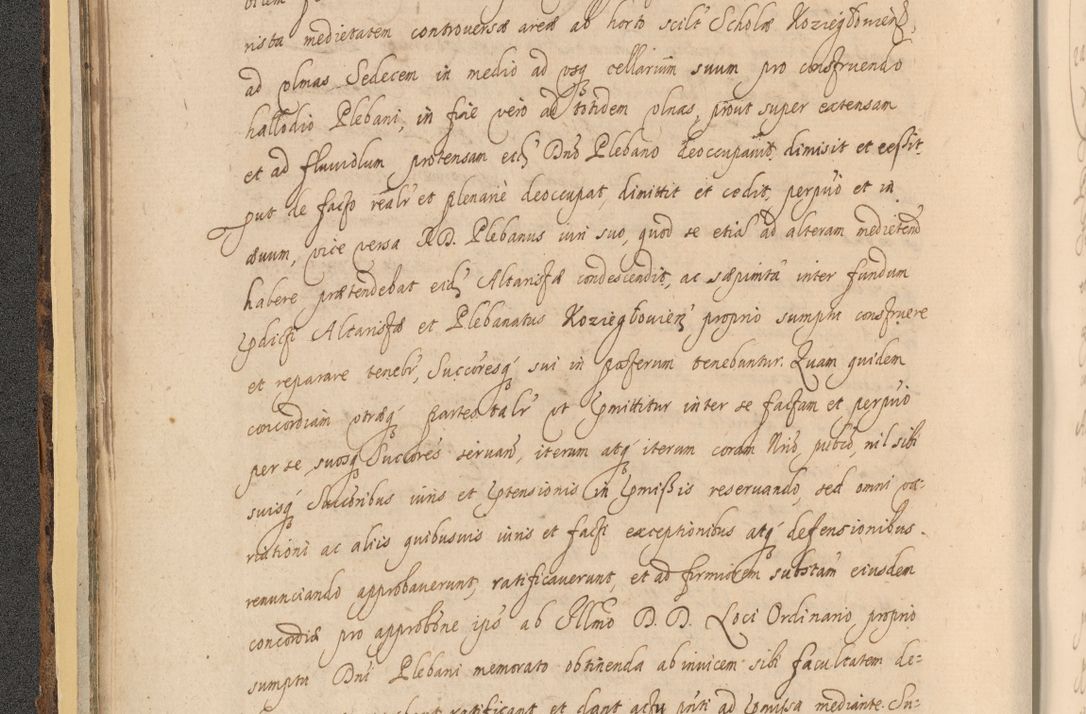 rista medietatem controversæ areæ ab horto scilt Scholæ Koziegłovien,
ad vlnas Sedecem in medio ad vsq cellarium suum pro construendo
hallodio Plebani, in fine vero ad totidem vlnas, prout super extensam
et ad fluviolum protensam eid Dno Plebano deoccupavit, dimisit et cessit.
put de facto realr et plenarie deoccupat, dimittit et cedit, perpuo et in
ævum, vice versa R. D. Plebanus iuri suo, quod se etia ad alteram medietem
habere prætendebat eid Altaristæ condescendit, ac sæpimta inter fundum
pdicti Altaristæ et Plebanatus Koziegłovien proprio sumptu construere
et reparare tenebr, Succoresq sui in posterum tenebuntur. Quam quidem
concordiam vtræq partes talr vt pmittitur inter se factam et perpuo
per se, suosq Succores servand, iterum atq iterum coram Nrio, pubco, nil sibi
suisq Succoribus iuris et ptensionis in pmissis reservando, sed omni va=
riationi ac aliis quibusvis iuris et facti exceptionibus atq defensionibus
renunciando approbaverunt, ratificaverunt, et ad firmiorem substam eiusdem
concordiæ pro approbone ipis ab Illmo D. D. Loci Ordinario, proprio
sumptu Dni Plebani memorato obtinenda ab invicem sibi facultatem de=
ratificant et dant actu pnti ad pmissa mediante. Su=